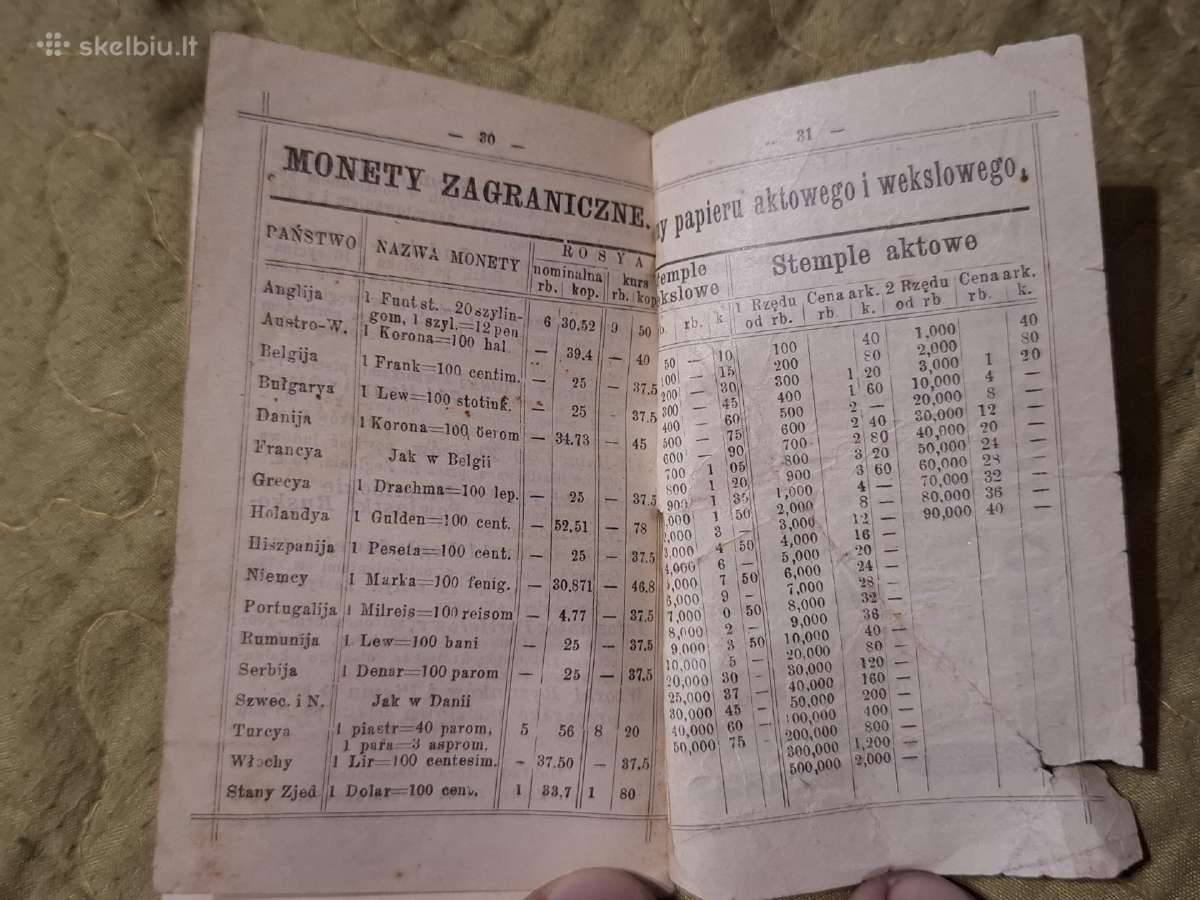 skelbiu.lt
— 30 —
MONETY ZAGRANICZNE.
PAŃSTWO NAZWA MONETY ROSYA
nominalna kurs
rb. kop. rb. kop
Anglija 1 Funt st. = 20 szylin-
gom, 1 szyl.=12 pen 6 30.52 9 50
Austro-W. 1 Korona=100 hal. — 39.4 — 40
Belgija 1 Frank=100 centim. — 25 — 37.5
Bułgarya 1 Lew=100 stotink. — 25 37.5
Danija 1 Korona=100, oerom — 34.73 — 45
Francya Jak w Belgii
Grecya 1 Drachma=100 lep. — 25 — 37.5
Holandya 1 Gulden=100 cent. — 52.51 — 78
Hiszpanija 1 Peseta=100 cent. — 25 — 37.5
Niemcy 1 Marka=100 fenig. — 30.871 — 46.8
Portugalija 1 Milreis=100 reisom — 4.77 — 37.5
Rumunija 1 Lew=100 bani — 25 — 37.5
Serbija 1 Denar=100 parom — 25 — 37.5
Szwec. i N. Jak w Danii
Turcya 1 piastr=40 parom, 5 56 8 20
1 para=3 asprom.
Włochy 1 Lir=100 centesim. - 37.50 — 37.5
Stany Zjed 1 Dolar=100 cent. 1 33.7 1 80
— 31 —
ny papieru aktowego i wekslowego.
temple Stemple aktowe
kslowe 1 Rzędu Cena ark. 2 Rzędu Cena ark.
b. rb. k. od rb. rb. k. od rb rb. k.
50 — 10 100 40 1,000 40
100 — 15 200 80 2,000 80
200 — 30 300 1 20 3,000 1 20
300 — 45 400 1 60 10,000 4 —
400 — 60 500 2 — 20,000 8 —
500 — 75 600 2 40 30,000 12 —
600 — 90 700 2 80 40,000 20 —
700 1 05 800 3 20 50,000 24 —
800 1 20 900 3 60 60,000 28 —
900 1 35 1,000 4 — 70,000 32 —
,000 1 50 2,000 8 — 80,000 36 —
2,000 3 — 3,000 12 — 90,000 40 —
3,000 4 50 4,000 16 —
4,000 6 — 5,000 20 —
5,000 7 50 6,000 24 —
6,000 9 — 7,000 28 —
7,000 0 50 8,000 32 —
8,000 2 — 9,000 36 —
9,000 3 50 10,000 40 —
10,000 5 — 20,000 80 —
20,000 30 — 30,000 120 —
25,000 37 — 40,000 160 —
30,000 45 — 50,000 200 —
40,000 60 — 100,000 400 —
50,000 75 - 200,000 800 —
300,000 1,200 —
500,000 2,000 —